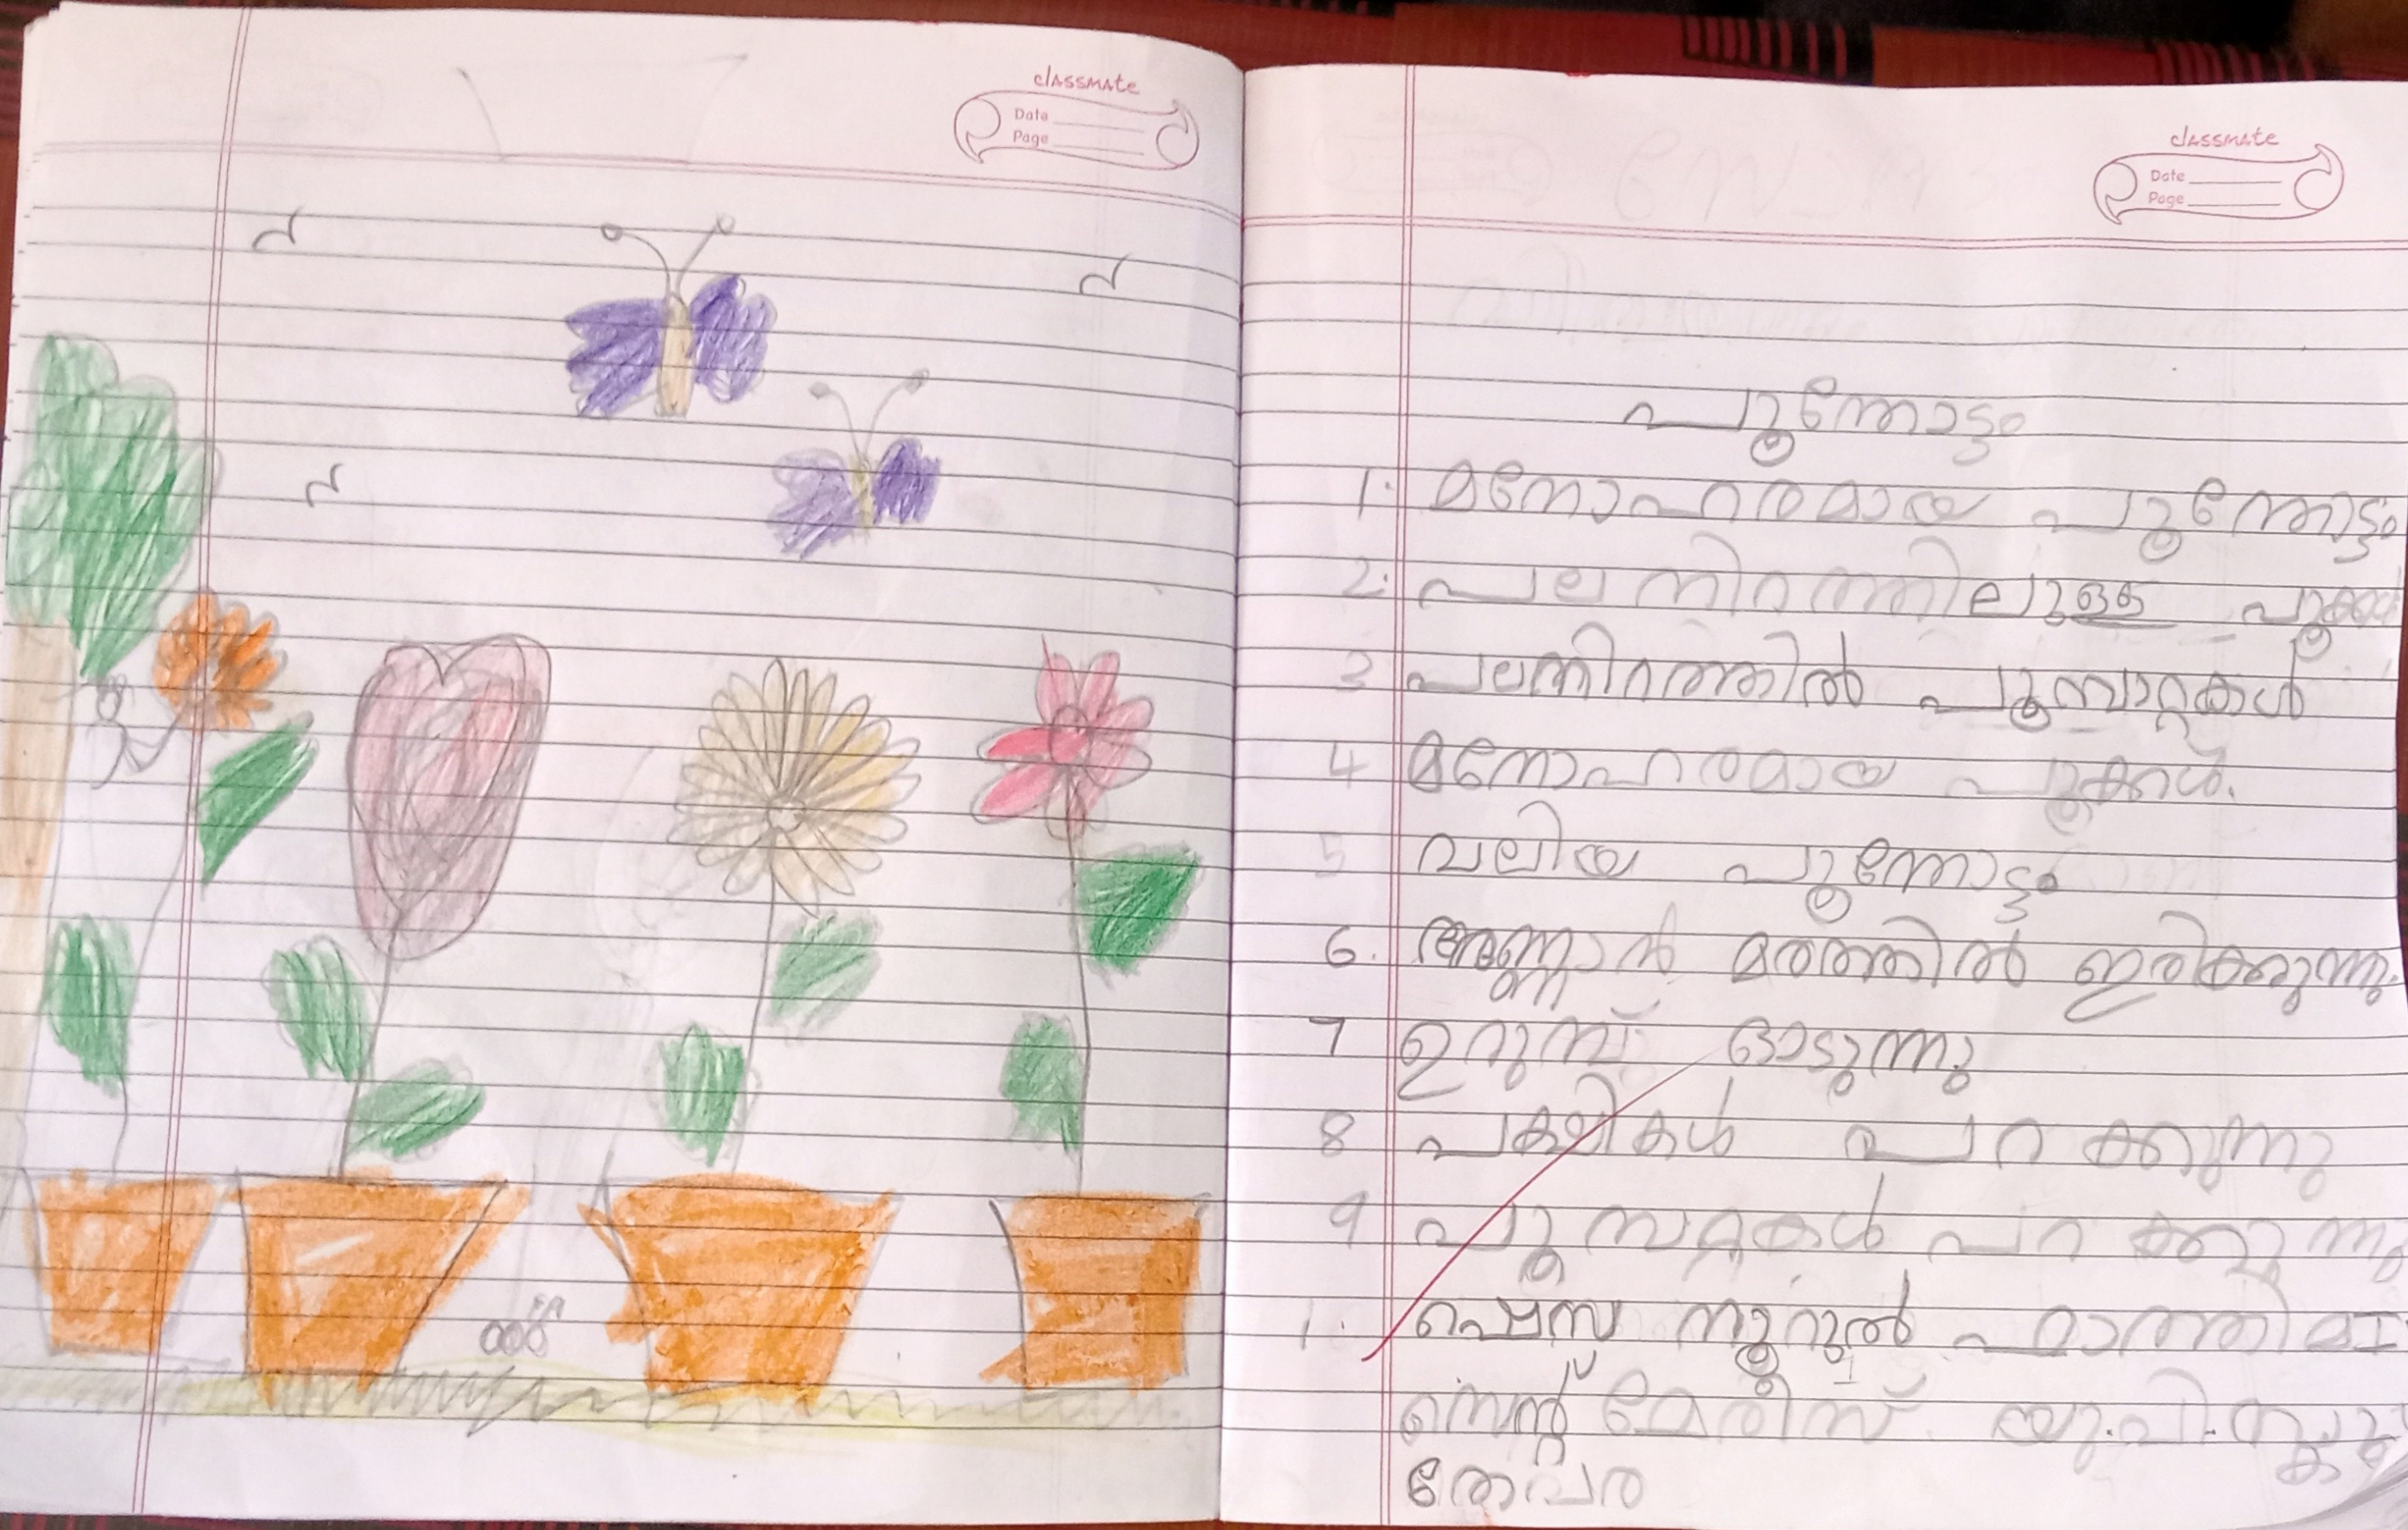 classmate
Date
Page
classmate
Date
Page
പൂന്തോട്ടം
1. മനോഹരമായ പൂന്തോട്ടം
2. പല നിറത്തിലുള്ള
3 പലനിറത്തിൽ പൂമ്പാറ്റകൾ
4 മനോഹരമായ പൂക്കൾ.
5 വലിയ പൂന്തോട്ടം
6. അണ്ണാൻ മരത്തിൽ ഇരിക്കുന്നു.
7 ഉറുമ്പ് ഓടുന്നു
8 പക്ഷികൾ പറക്കുന്നു
9 പൂമ്പറ്റകൾ പറക്കുന്നു
നൂറുൽ ഫാത്തിമ
സെന്റ് മേരീസ് യു.പി.
തേവര